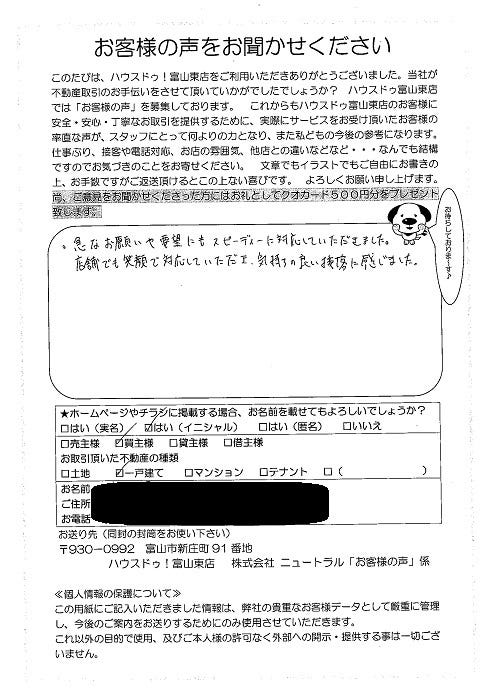 お客様の声をお聞かせください
このたびは、ハウスドゥ!富山東店をご利用いただきありがとうございました。当社が
不動産取引のお手伝いをさせて頂いていかがでしたでしょうか? ハウスドゥ富山東店
では「お客様の声」を募集しております。 これからもハウスドゥ富山東店のお客様に
安全・安心・丁寧なお取引を提供するために、実際にサービスをお受け頂いたお客様の
率直な声が、スタッフにとって何よりの力となり、また私どもの今後の参考になります。
仕事ぶり、接客や電話対応、お店の雰囲気、他店との違いなどなど・・・なんでも結構
ですのでお気づきのことをお寄せください。 文章でもイラストでもご自由にお書きの
上、お手数ですがご返送頂けるとこの上ない喜びです。 よろしくお願い申し上げます。
尚、ご意見をお聞かせくださった方にはお礼としてクオカード500円分をプレゼント
致します。
お待ちしておりま~す♪
。急なお願いや要望にもスピーディーに対応していただきました。
店舗でも笑顔で対応していただき、気持ちの良い挨拶に感じました。
★ホームページやチラシに掲載する場合、お名前を載せてもよろしいでしょうか?
□はい(実名) ☑はい(イニシャル) □はい(匿名) □いいえ
□売主様 ☑買主様 □貸主様 □借主様
お取引頂いた不動産の種類
□土地 ☑一戸建て □マンション □テナント □( )
お名前
ご住所
お電話
お送り先(同封の封筒をお使い下さい)
〒930-0992 富山市新庄町91番地
ハウスドゥ!富山東店 株式会社 ニュートラル「お客様の声」係
≪個人情報の保護について≫
この用紙にご記入いただきました情報は、弊社の貴重なお客様データとして厳重に管理
し、今後のご案内をお送りするためにのみ使用させていただきます。
これ以外の目的で使用、及びご本人様の許可なく外部への開示・提供する事は一切ござ
いません。